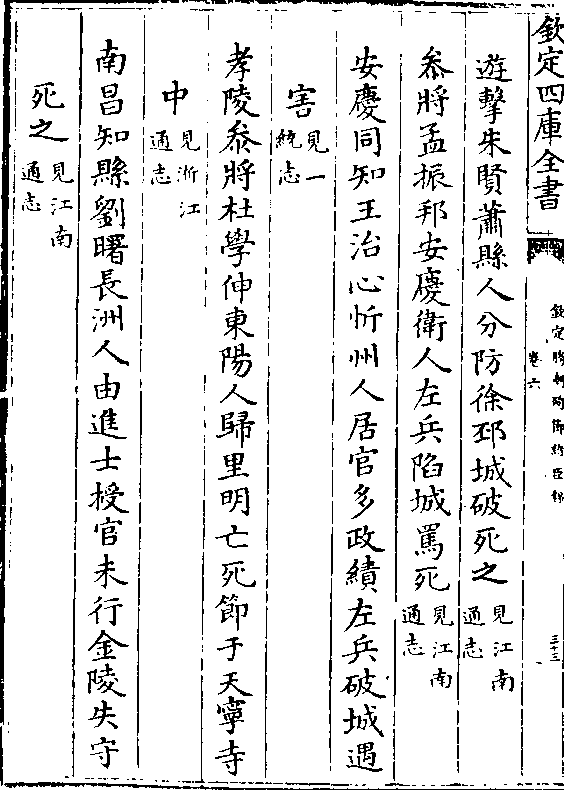 欽定四庫全書
欽定勝朝殉節諸臣錄
卷六
三十三
遊擊朱賢蕭縣人分防徐邳城破死之見江南通志
叅將孟振邦安慶衛人左兵陷城罵死見江南通志
安慶同知王治心忻州人居官多政績左兵破城遇
害見一統志
孝陵叅將杜學伸東陽人歸里明亡死節于天寧寺
中見浙江通志
南昌知縣劉曙長洲人由進士授官未行金陵失守
死之見江南通志